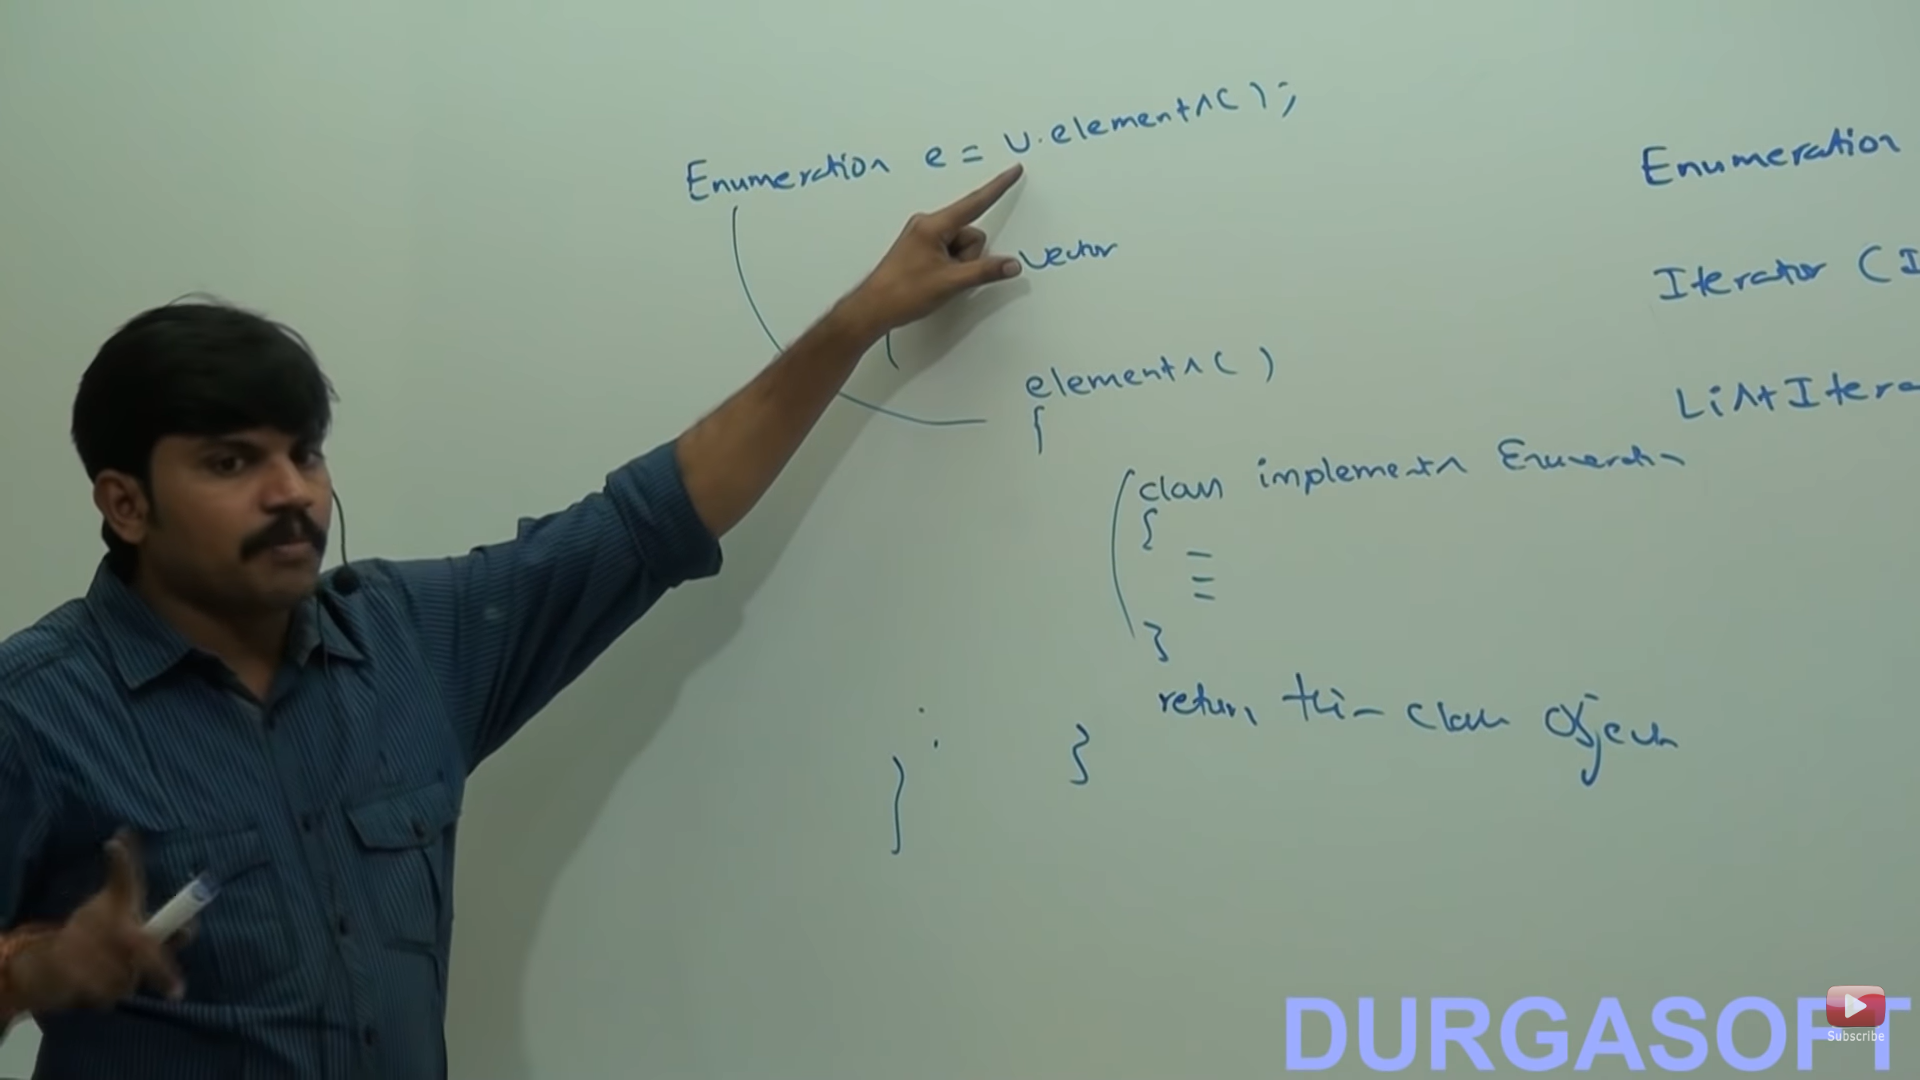 Enumeration e = v.elements();
Vector
elements()
{
class implements Enumeration
{
}
return this class object
}
}
Enumeration
Iterator (I
ListItera
DURGASOFT
Subscribe